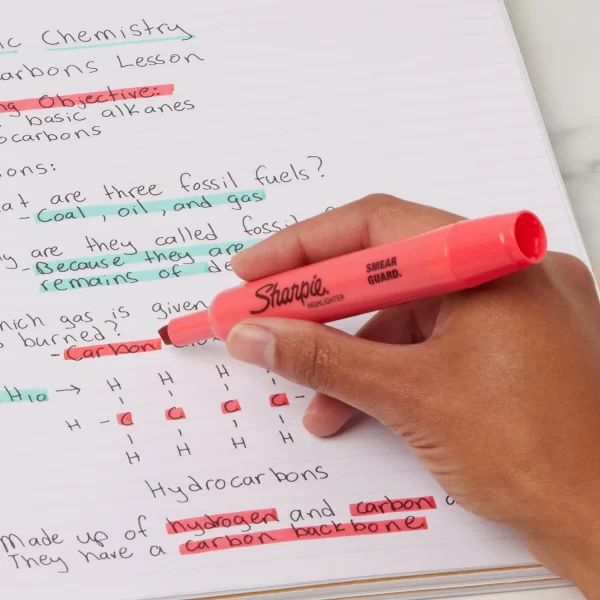 Chemistry
arbons Lesson
Objective:
basic alkanes
ocarbons
ons:
at are three fossil fuels?
- Coal, oil, and gas
are they called fossil
- Because they are
remains of
hich gas is given
burned?
- Carbon
H10 → H H H
H - C C C C -
H H H H
Hydrocarbons
Made up of hydrogen and carbon
They have a carbon backbone
Sharpie.
HIGHLIGHTER
SMEAR
GUARD.